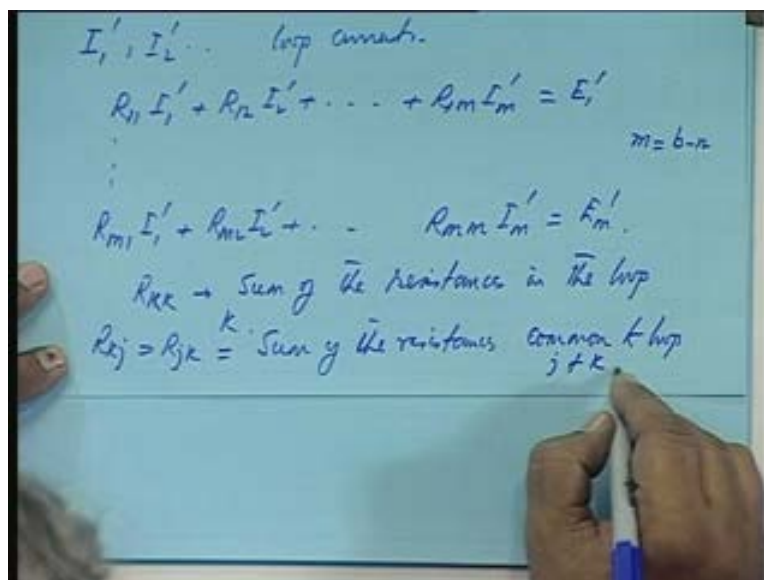 I₁', I₂' .. loop currents.
R₁₁ I₁' + R₁₂ I₂' + . . . + R₁m Im' = E₁'
m = b-n
:
Rm₁ I₁' + Rm₂ I₂' + . . Rmm Im' = Em'.
RKK → Sum of the resistances in the loop
K.
Rkj = Rjk = Sum of the resistances common to loop
j & k.